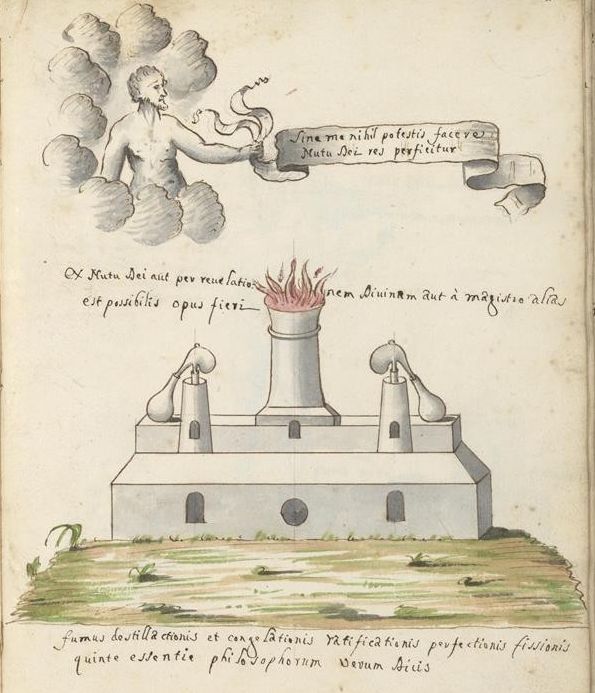 Sine me nihil potestis facere
Nutu Dei res perficitur
Ex Nutu Dei aut per reuelationem Divinam aut à magistro alias
est possibilis opus fieri
fumus destillactionis et congelationis ratificationis perfectionis fissionis
quinte essentie philosophorum verum Dicis